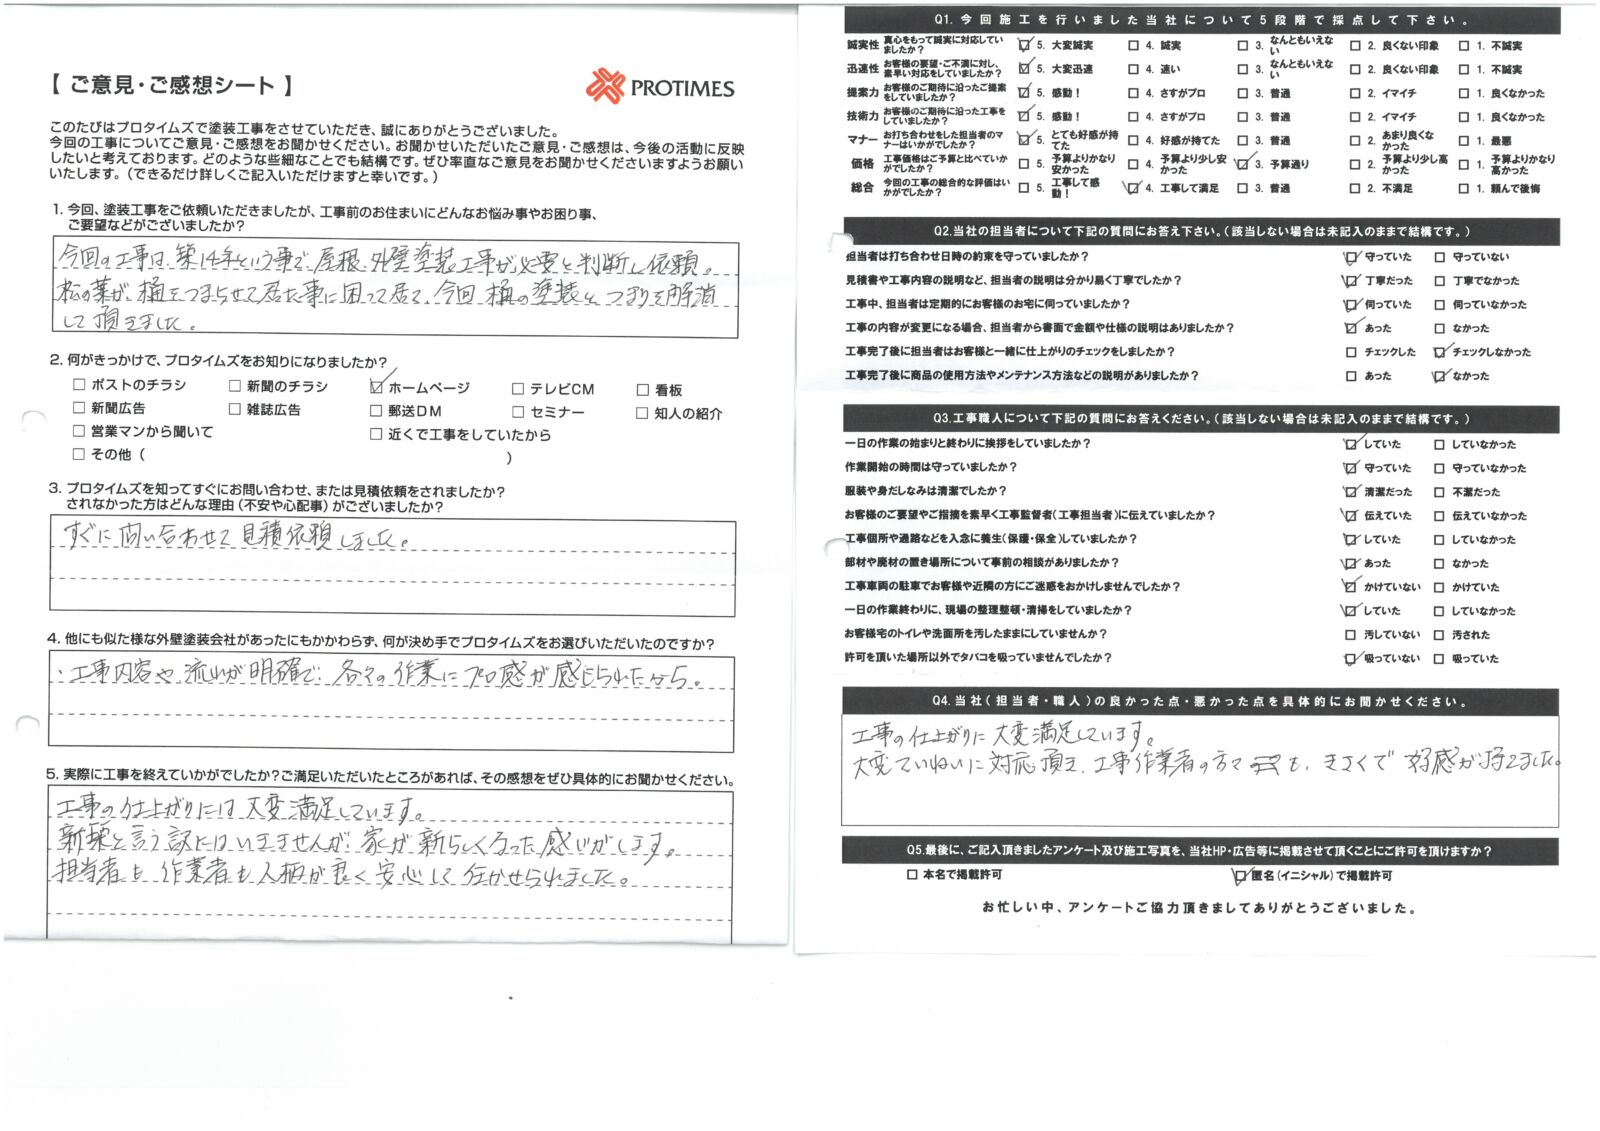 【 ご意見・ご感想シート 】
PROTIMES
このたびはプロタイムズで塗装工事をさせていただき、誠にありがとうございました。
今回の工事についてご意見・ご感想をお聞かせください。お聞かせいただいたご意見・ご感想は、今後の活動に反映
したいと考えております。どのような些細なことでも結構です。ぜひ率直なご意見をお聞かせくださいますようお願い
いたします。(できるだけ詳しくご記入いただけますと幸いです。)
1. 今回、塗装工事をご依頼いただきましたが、工事前のお住まいにどんなお悩み事やお困り事、
ご要望などがございましたか?
今回の工事は、築14年という事で、屋根、外壁塗装工事が必要と判断し依頼。
松の葉が、樋をつまらせて居た事に困って居て、今回樋の塗装と、つまりを解消
して頂きました。
2. 何がきっかけで、プロタイムズをお知りになりましたか?
□ ポストのチラシ □ 新聞のチラシ ☑ ホームページ □ テレビCM □ 看板
□ 新聞広告 □ 雑誌広告 □ 郵送DM □ セミナー □ 知人の紹介
□ 営業マンから聞いて □ 近くで工事をしていたから
□ その他 ( )
3. プロタイムズを知ってすぐにお問い合わせ、または見積依頼をされましたか?
されなかった方はどんな理由(不安や心配事)がございましたか?
すぐに問い合わせて見積依頼しました。
4. 他にも似た様な外壁塗装会社があったにもかかわらず、何が決め手でプロタイムズをお選びいただいたのですか?
・工事内容や流れが明確で、各々の作業にプロ感が感じられたから。
5. 実際に工事を終えていかがでしたか?ご満足いただいたところがあれば、その感想をぜひ具体的にお聞かせください。
工事の仕上がりには大変満足しています。
新築と言う訳にはいきませんが、家が新らしくなった感じがします。
担当者も作業者も人柄が良く安心して任かせられました。
Q1. 今回施工を行いました当社について5段階で採点して下さい。
誠実性 真心をもって誠実に対応していましたか? ☑ 5. 大変誠実 □ 4. 誠実 □ 3. なんともいえない □ 2. 良くない印象 □ 1. 不誠実
迅速性 お客様の要望・ご不満に対し、素早い対応をしていましたか? ☑ 5. 大変迅速 □ 4. 速い □ 3. なんともいえない □ 2. 良くない印象 □ 1. 不誠実
提案力 お客様のご期待に沿ったご提案をしていましたか? ☑ 5. 感動! □ 4. さすがプロ □ 3. 普通 □ 2. イマイチ □ 1. 良くなかった
技術力 お客様のご期待に沿った工事をしていましたか? ☑ 5. 感動! □ 4. さすがプロ □ 3. 普通 □ 2. イマイチ □ 1. 良くなかった
マナー お打ち合わせをした担当者のマナーはいかがでしたか? ☑ 5. とても好感が持てた □ 4. 好感が持てた □ 3. 普通 □ 2. あまり良くなかった □ 1. 最悪
価格 工事価格はご予算と比べていかがでしたか? □ 5. 予算よりかなり安かった □ 4. 予算より少し安かった ☑ 3. 予算通り □ 2. 予算より少し高かった □ 1. 予算よりかなり高かった
総合 今回の工事の総合的な評価はいかがでしたか? □ 5. 工事して感動! ☑ 4. 工事して満足 □ 3. 普通 □ 2. 不満足 □ 1. 頼んで後悔
Q2. 当社の担当者について下記の質問にお答え下さい。(該当しない場合は未記入のままで結構です。)
担当者は打ち合わせ日時の約束を守っていましたか? ☑ 守っていた □ 守っていない
見積書や工事内容の説明など、担当者の説明は分かり易く丁寧でしたか? ☑ 丁寧だった □ 丁寧でなかった
工事中、担当者は定期的にお客様のお宅に伺っていましたか? ☑ 伺っていた □ 伺っていなかった
工事の内容が変更になる場合、担当者から書面で金額や仕様の説明はありましたか? ☑ あった □ なかった
工事完了後に担当者はお客様と一緒に仕上がりのチェックをしましたか? □ チェックした ☑ チェックしなかった
工事完了後に商品の使用方法やメンテナンス方法などの説明がありましたか? □ あった ☑ なかった
Q3. 工事職人について下記の質問にお答えください。(該当しない場合は未記入のままで結構です。)
一日の作業の始まりと終わりに挨拶をしていましたか? ☑ していた □ していなかった
作業開始の時間は守っていましたか? ☑ 守っていた □ 守っていなかった
服装や身だしなみは清潔でしたか? ☑ 清潔だった □ 不潔だった
お客様のご要望やご指摘を素早く工事監督者(工事担当者)に伝えていましたか? ☑ 伝えていた □ 伝えていなかった
工事個所や通路などを入念に養生(保護・保全)していましたか? ☑ していた □ していなかった
部材や廃材の置き場所について事前の相談がありましたか? ☑ あった □ なかった
工事車両の駐車でお客様や近隣の方にご迷惑をおかけしませんでしたか? ☑ かけていない □ かけていた
一日の作業終わりに、現場の整理整頓・清掃をしていましたか? ☑ していた □ していなかった
お客様宅のトイレや洗面所を汚したままにしていませんか? □ 汚していない □ 汚された
許可を頂いた場所以外でタバコを吸っていませんでしたか? ☑ 吸っていない □ 吸っていた
Q4. 当社(担当者・職人)の良かった点・悪かった点を具体的にお聞かせください。
工事の仕上がりに大変満足しています。
大変ていねいに対応頂き、工事作業者の方々も、きさくで好感が持てました。
Q5. 最後に、ご記入頂きましたアンケート及び施工写真を、当社HP・広告等に掲載させて頂くことにご許可を頂けますか?
□ 本名で掲載許可 ☑ 匿名(イニシャル)で掲載許可
お忙しい中、アンケートご協力頂きましてありがとうございました。